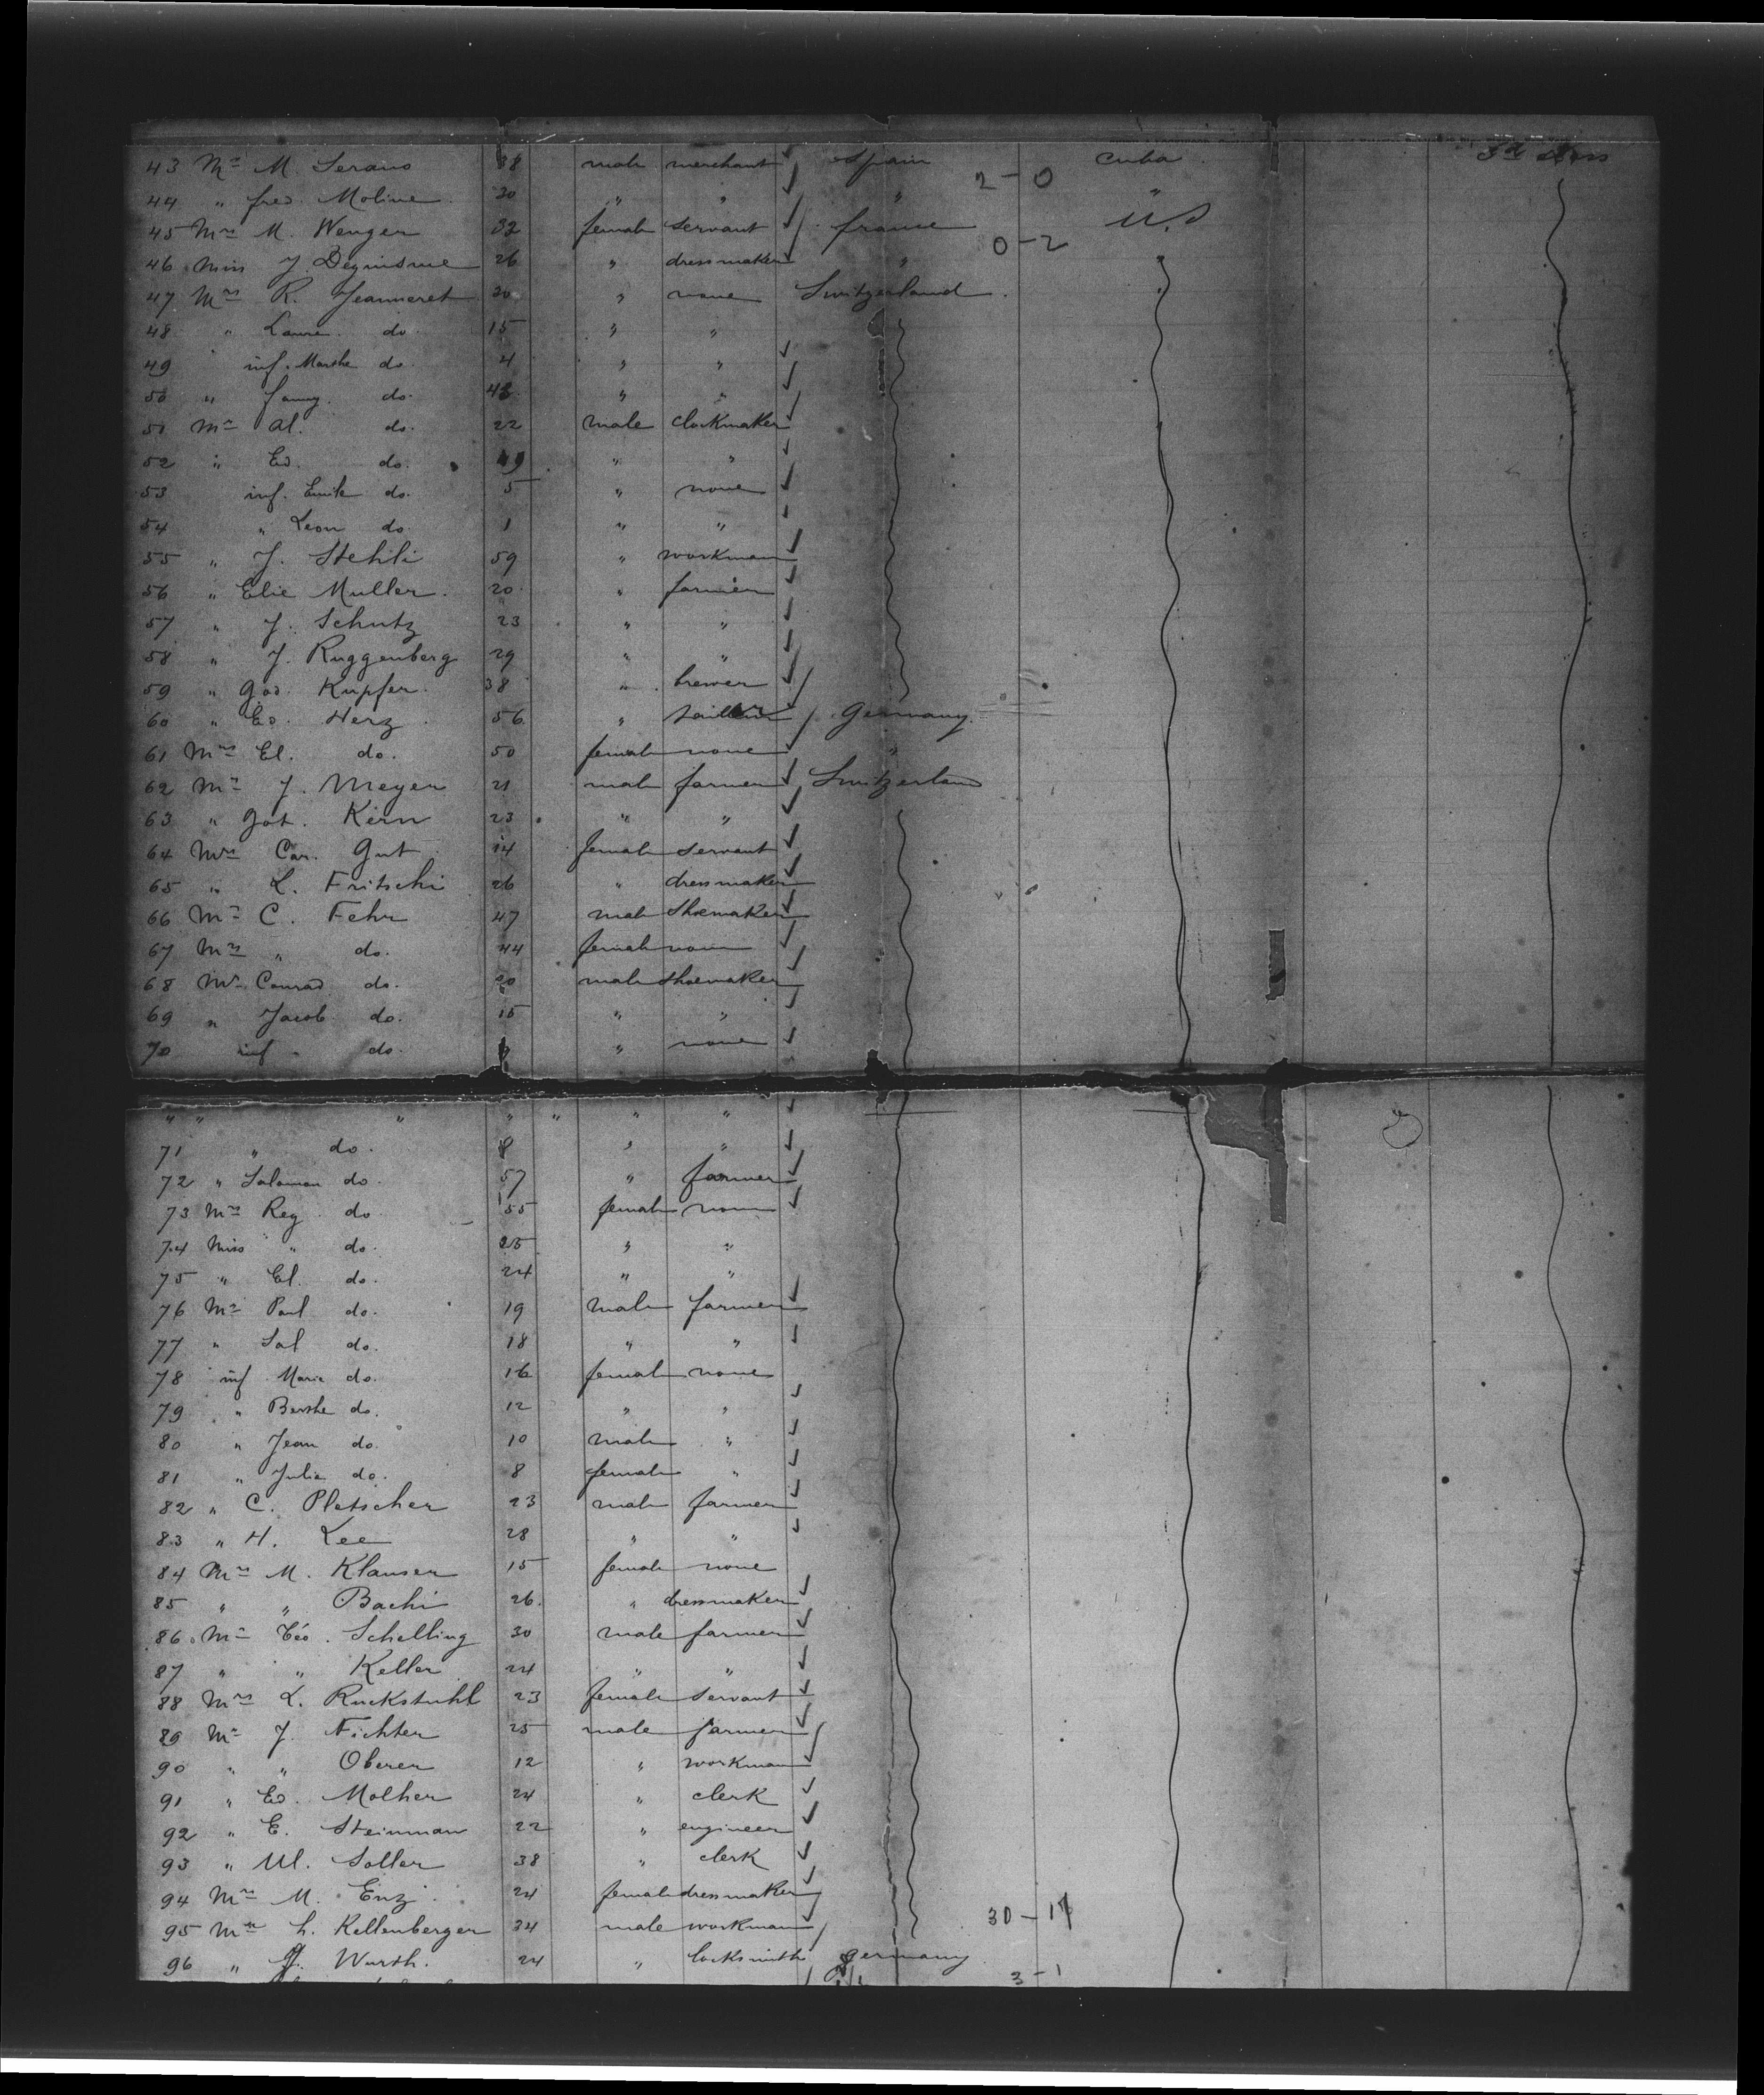 43 Mr M. Serano 38 male merchant Spain Cuba 3d class
2-0
44 " fred. Moline 30 " " " "
45 Mrs M. Wenger 32 female servant france U.S
0-2
46 Miss J. 26 " dressmaker "
47 Mrs R. Jeanneret 30 " none Switzerland
48 " Laure do 15 " "
49 inf. Marthe do. 4 " "
50 " fanny do. 48 " "
51 Mr Al. do. 22 male clockmaker
52 " Ed. do. 19 " "
53 inf. Emile do. 5 " none
54 " Leon do. 1 " "
55 " J. Stehli 59 " workman
56 " Elie Muller 20 " farmer
57 " J. Schutz 23 " "
58 " J. Ruggenberg 29 " "
59 " God. Kupfer 38 " brewer
60 " Ed. Herz 56 " Germany
61 Mrs El. do. 50 female none "
62 Mr J. Meyer 21 male farmer Switzerland
63 " Got. Kern 23 " "
64 Mrs Car. Gut 14 female servant
65 " L. Fritschi 26 " dressmaker
66 Mr C. Fehr 47 male Shoemaker
67 Mrs " do. 44 female none
68 Mr Conrad do. 20 male shoemaker
69 " Jacob do. 15 " "
70 inf " do. " none
" " " " " " "
71 " do. 8 " "
72 " Salomon do. 57 " farmer
73 Mrs Reg. do 55 female none
74 Miss " do. 25 " "
75 " El. do. 24 " "
76 Mr Paul do. 19 male farmer
77 " Sal do. 18 " "
78 inf Marie do. 16 female none
79 " Berthe do. 12 " "
80 " Jean do. 10 male "
81 " Julie do. 8 female "
82 " C. Pletscher 23 male farmer
83 " H. Lee 28 " "
84 Mrs M. Klauser 15 female none
85 " " Bachi 26. " dressmaker
86 Mr Téo. Schelling 30 male farmer
87 " " Keller 24 " "
88 Mrs L. Ruckstuhl 23 female servant
89 Mr J. Fichter 25 male farmer
90 " " Oberer 12 " workman
91 " Ed. Molher 24 " clerk
92 " E. Steinman 22 " engineer
93 " Ul. Soller 38 " clerk
94 Mrs M. Enz 24 female dressmaker
95 Mr h. Kellenberger 34 male workman 30-17
96 " J. Wurth. 24 " locksmith germany
3-1